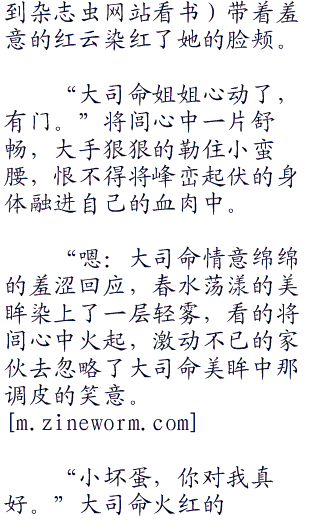 到杂志虫网站看书）带着羞
意的红云染红了她的脸颊。
“大司命姐姐心动了，
有门。”将闾心中一片舒
畅，大手狠狠的勒住小蛮
腰，恨不得将峰峦起伏的身
体融进自己的血肉中。
“嗯：大司命情意绵绵
的羞涩回应，春水荡漾的美
眸染上了一层轻雾，看的将
闾心中火起，激动不已的家
伙去忽略了大司命美眸中那
调皮的笑意。
[m.zineworm.com]
“小坏蛋，你对我真
好。”大司命火红的